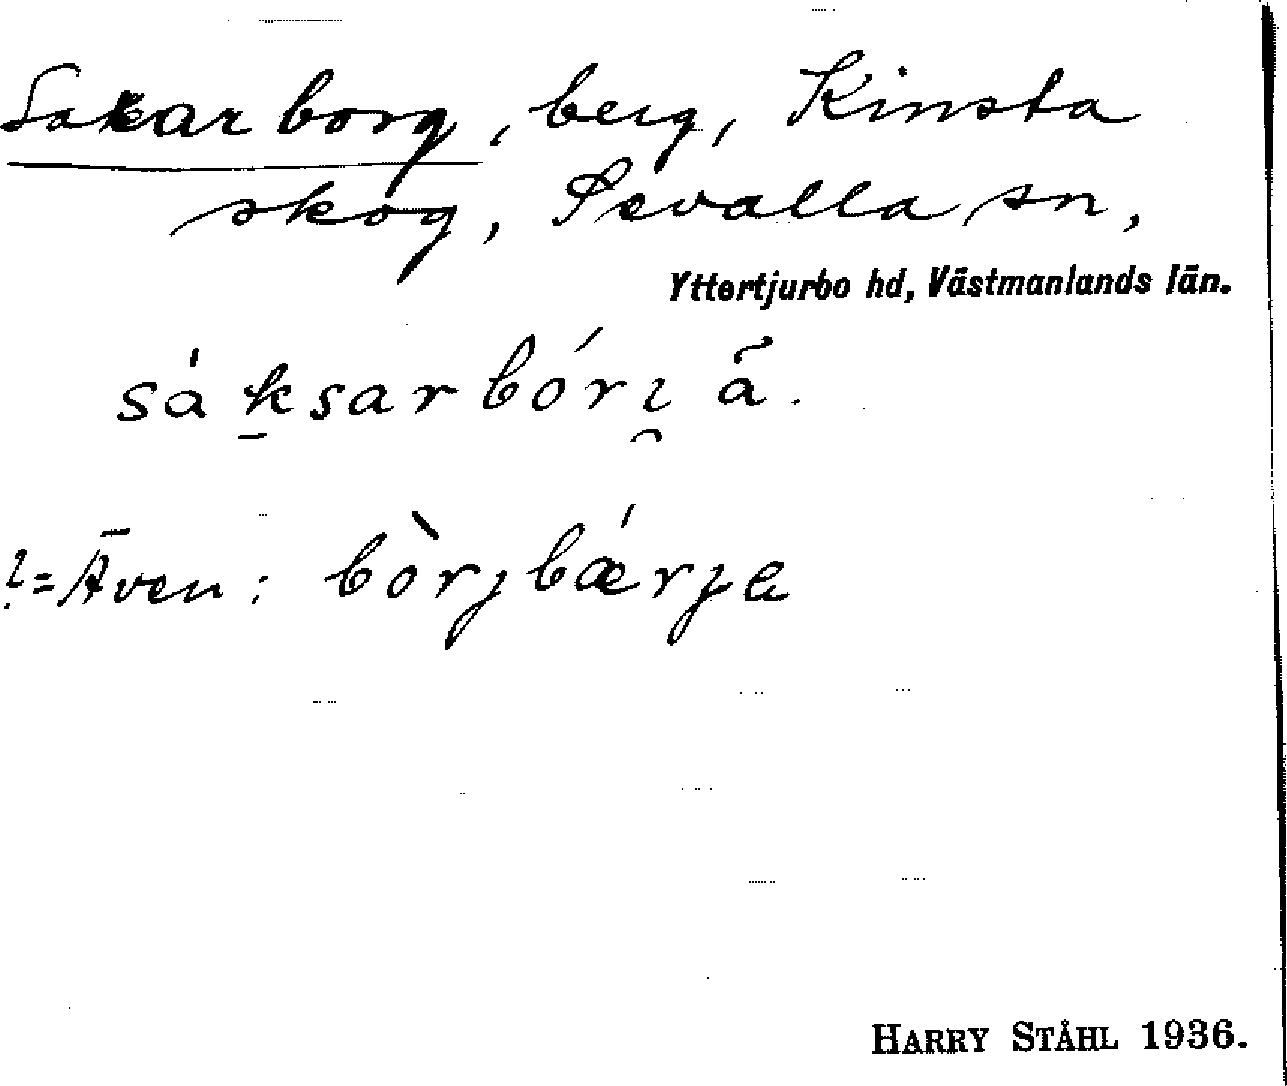 Saxarborg, berg, Kinsta
skog, Sevalla sn,
Yttertjurbo hd, Västmanlands län.
sáksarbórı ã.
Även: bòrjbǽrje
HARRY STÅHL 1936.